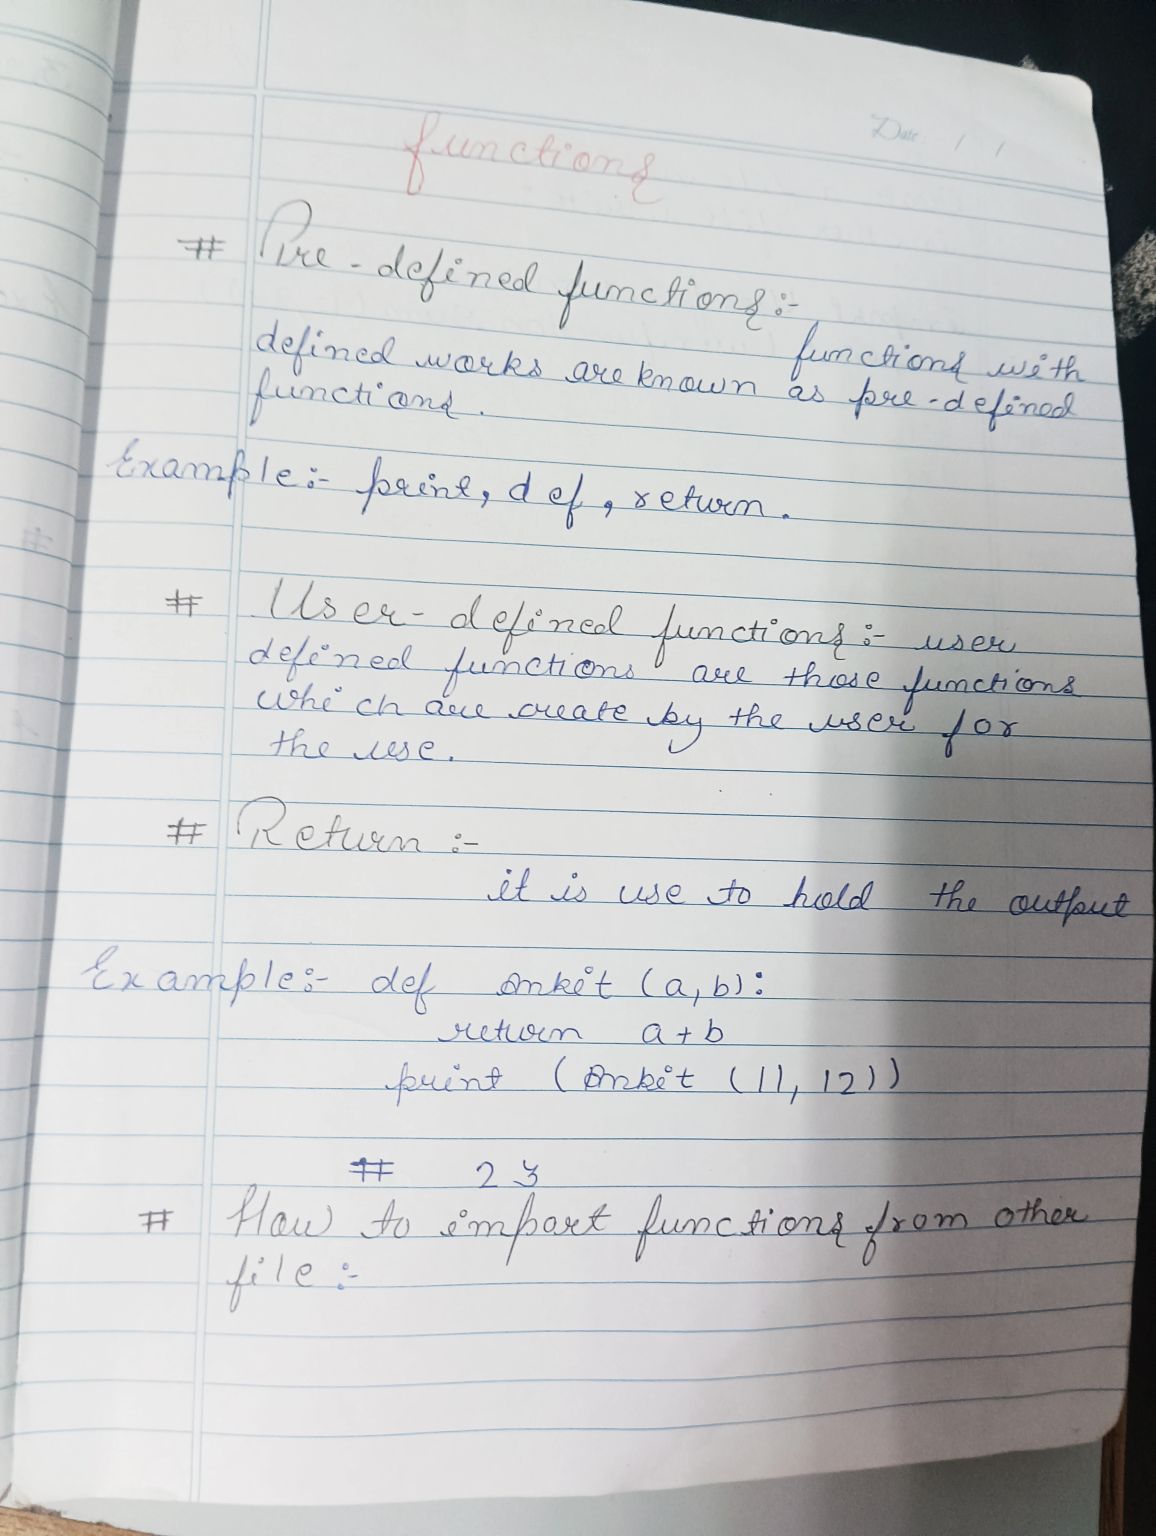 Date / /
functions
# Pre-defined functions :-
functions with
defined works are known as pre-defined
functions.
Example :- print, def, return.
# User-defined functions :- user
defined functions are those functions
which are create by the user for
the use.
# Return :-
it is use to hold the output
Example :- def Ankit (a, b):
return a+b
print (Ankit (11, 12))
# 23
# How to import functions from other
file :-